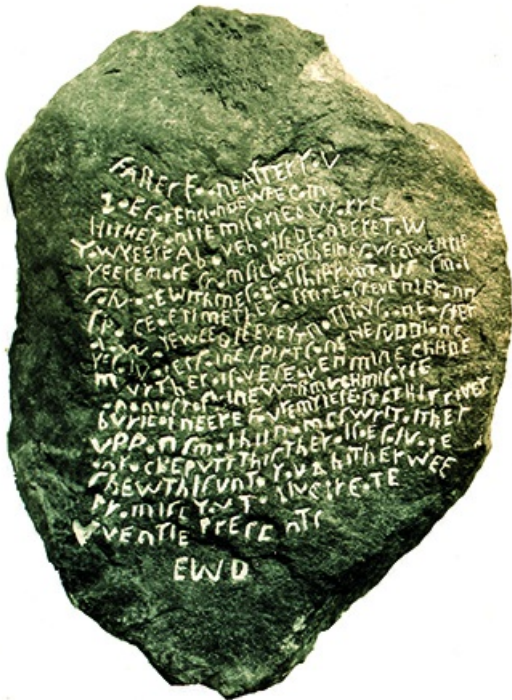 FATHER SOONE AFTER YOV
GOE FOR ENGLANDE WEE CAM
HITHER ONLIE MISARIE & WARRE
TOW YEERE ABOVEN HALFE DEADE ERE TOW
YEERE MORE FROM SICKENES BEINE FOVRE & TWENTIE
SALVAGE WITH MESSAGE OF SHIPP VNTO VS SMAL
SPACE OF TIME THEY AFFRITE OF REVENGE RANN
AL AWAYE WEE BLEEVE YT NOTT YOV SOONE AFTER
YE SALVAGES FAINE SPIRTS ANGRIE SVDDIANE
MVRTHER AL SAVE SEAVEN MINE CHILDE
ANANIAS TO SLAINE WTH MVCH MISARIE
BVRIE AL NEERE FOVRE MYLES EASTE THIS RIVER
VPPON SMAL HIL NAMES WRIT AL THER
ON ROCKE PVTT THIS THER ALSOE SALVAGE
SHEW THIS VNTO YOV & HITHER WEE
PROMISE YOV TO GIVE GREATE
PLENTIE PRESENTS
EWD